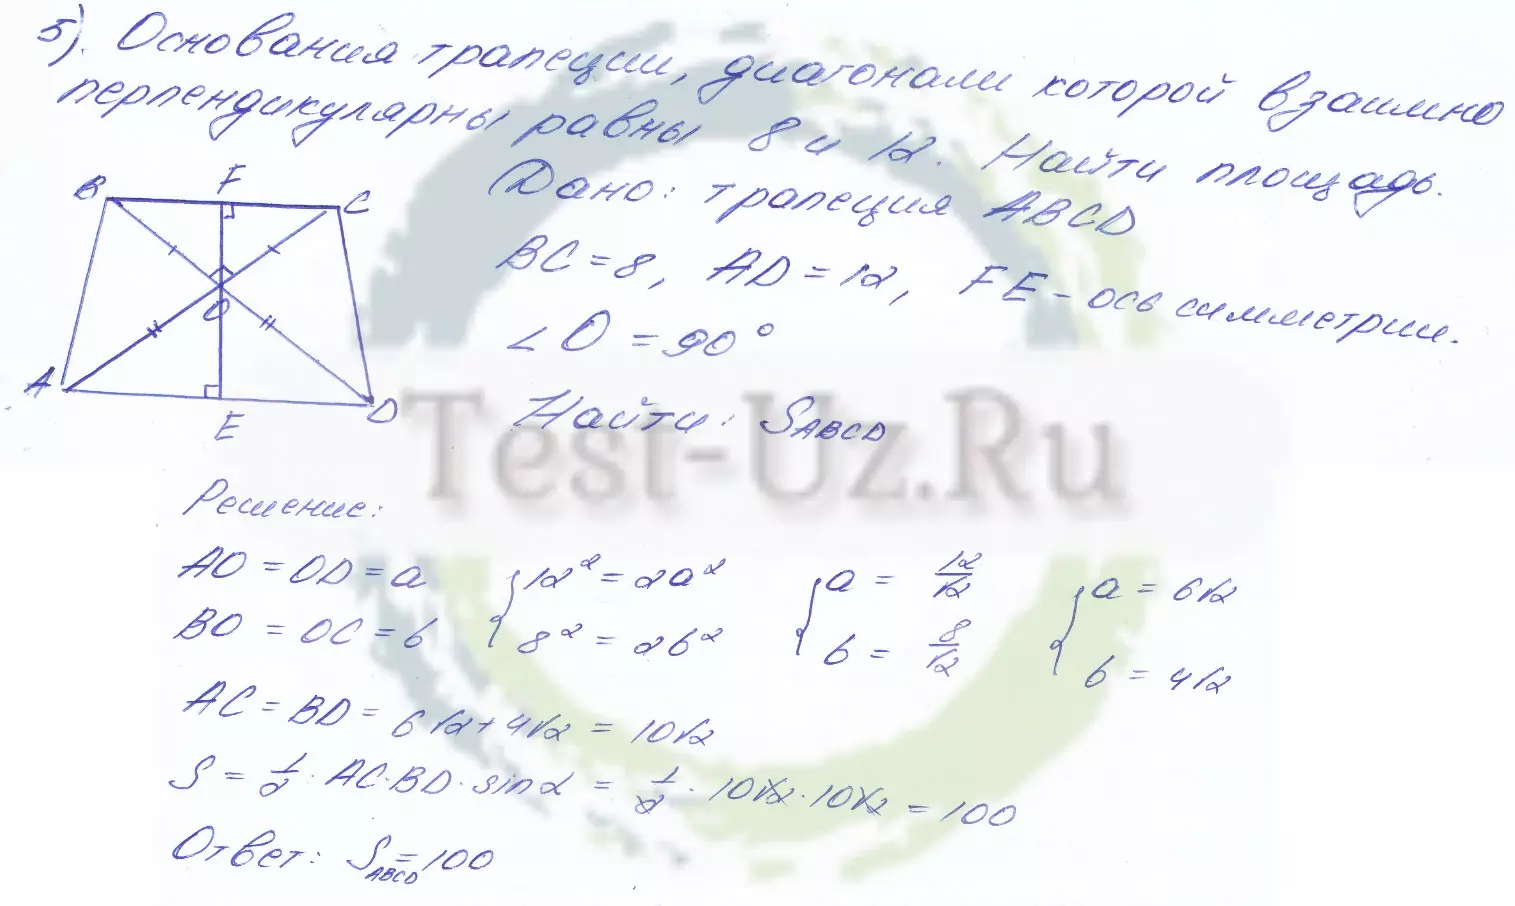 5). Основания трапеции, диагонали которой взаимно
перпендикулярны равны 8 и 12. Найти площадь.
B F C
O
A E D
Дано: трапеция ABCD
BC = 8, AD = 12, FE - ось симметрии.
∠O = 90°
Найти: S_ABCD
Test-Uz.Ru
Решение:
AO = OD = a { 12² = 2a² { a = 12/√2 { a = 6√2
BO = OC = b 8² = 2b² b = 8/√2 b = 4√2
AC = BD = 6√2 + 4√2 = 10√2
S = 1/2 · AC · BD · sin α = 1/2 · 10√2 · 10√2 = 100
Ответ: S_ABCD = 100